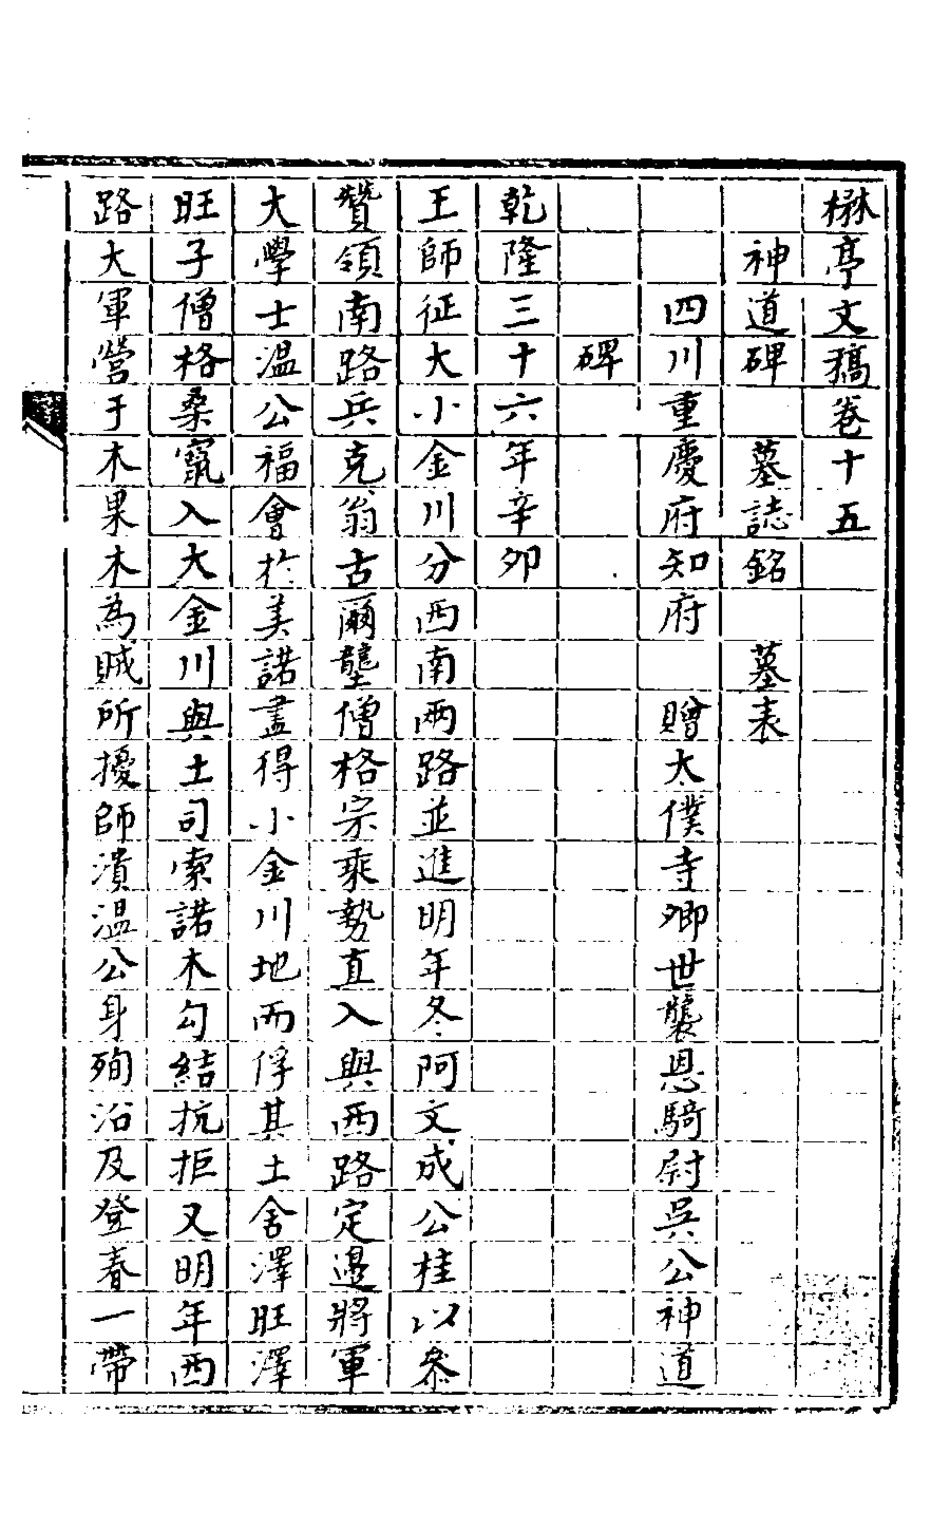 楙亭文稿卷十五
神道碑　墓誌銘　墓表
四川重慶府知府　贈太僕寺卿世襲恩騎尉吳公神道
碑
乾隆三十六年辛卯
王師征大小金川分西南兩路並進明年冬阿文成公桂以叅
贊領南路兵克翁古爾壟僧格宗乘勢直入與西路定邊將軍
大學士溫公福會於美諾盡得小金川地而俘其土舍澤旺澤
旺子僧格桑竄入大金川與土司索諾木勾結抗拒又明年西
路大軍營于木果木為賊所擾師潰溫公身殉沿及登春一帶